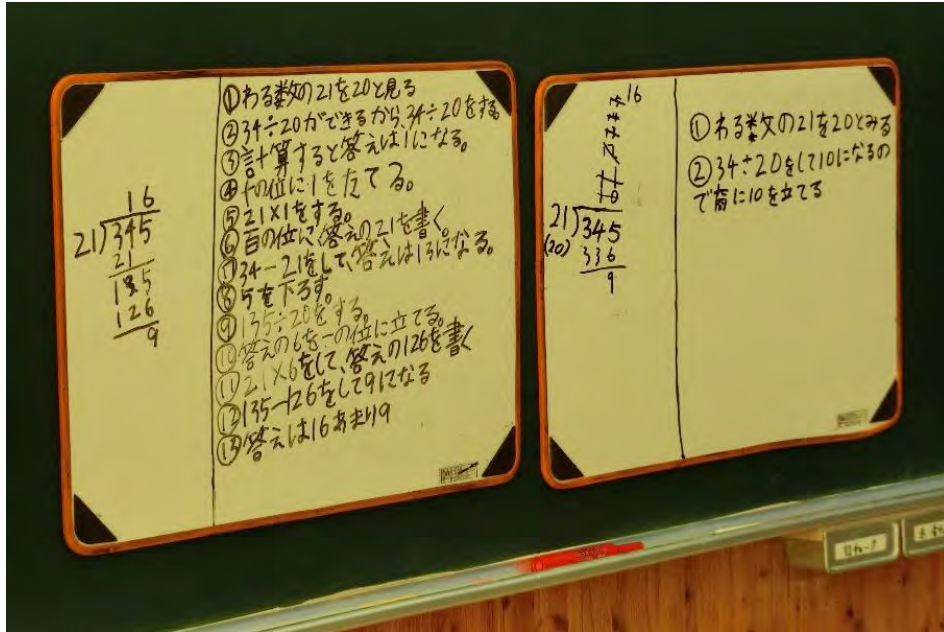 16
21)345
21
135
126
9
①わる数の21を20と見る
②34÷20ができるから、34÷20をする。
③計算すると答えは1になる。
④十の位に1をたてる。
⑤21×1をする。
⑥百の位に、答えの21を書く。
⑦34-21をして、答えは13になる。
⑧5を下ろす。
⑨135÷20をする。
⑩答えの6を一の位に立てる。
⑪21×6をして、答えの126を書く
⑫135-126をして9になる
⑬答えは16あまり9
16
21)345
(20)
336
9
①わる数の21を20とみる
②34÷20をして10になるの
で商に10を立てる